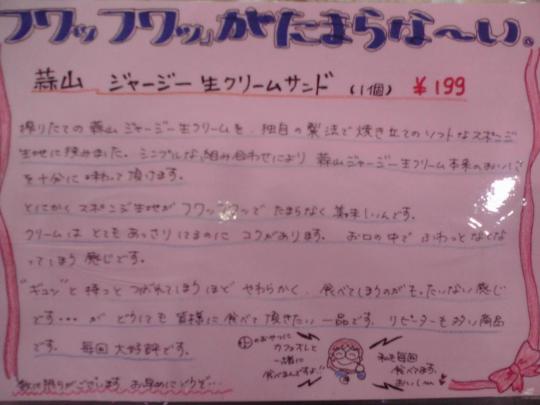 フワッフワッ」がたまらな〜い。
蒜山 ジャージー生クリームサンド (1個) ¥199
搾りたての蒜山ジャージー生クリームを、独自の製法で焼き立てのソフトなスポンジ
生地に挟みました。シンプルな組み合わせにより蒜山ジャージー生クリーム本来のおいしさ
を十分に味わって頂けます。
とにかくスポンジ生地がフワッフワッでたまらなく美味しいんです。
クリームはとてもあっさりしてるのにコクがあります。お口の中でふわっとなくな
ってしまう感じです。
"ギュッ"と持つとつぶれてしまうほどやわらかく、食べてしまうのがもったいない感じ
です…がどうしても皆様に食べて頂きたい一品です。リピーターも多い商品
です。毎回大好評です。
数に限りがございます。お早めにどうぞ…
のおやつに
カフェオレと
一緒に
食べるんですよ!!
私も毎回
食べてます。
おいしい